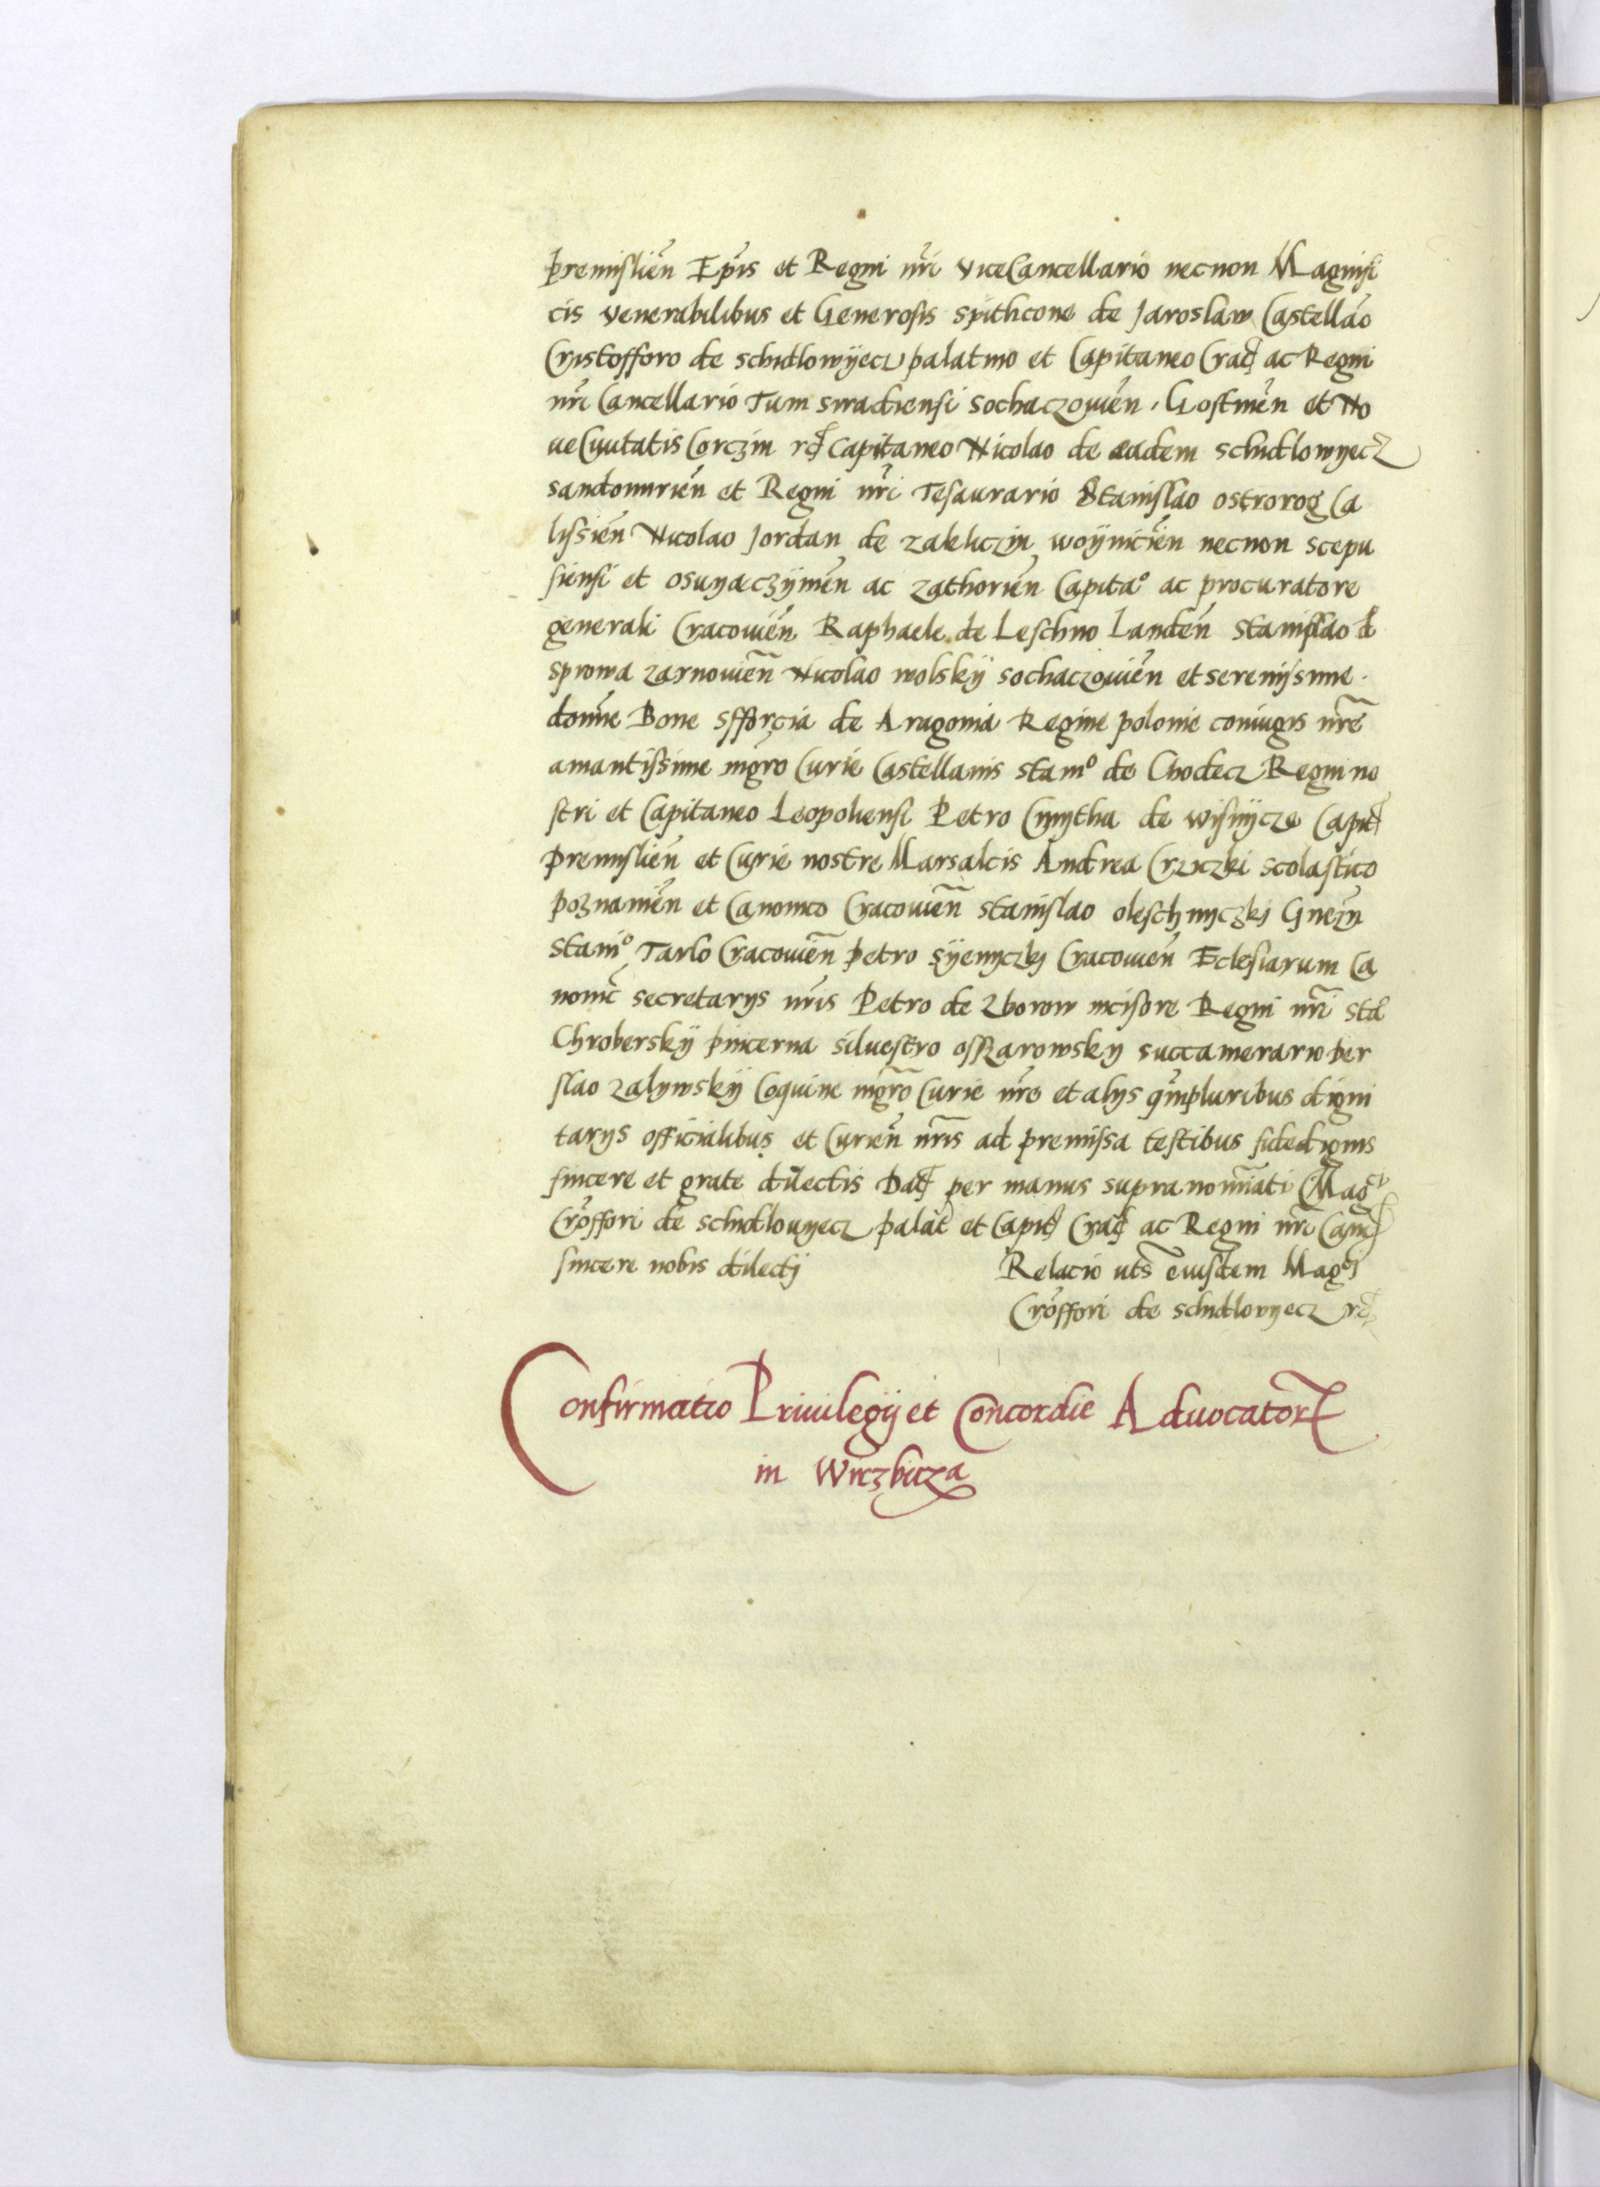 premislien̄ Ep̄is et Regni nr̄i ViceCancellario necnon Magnifi
cis Venerabilibus et Generosis Spithcone de Jaroslaw Castellāo
Cristofforo de Schidlowÿecz palatino et Capitaneo Crac̄ ac Regni
nr̄i Cancellario Tum Siradiensi Sochaczovien̄. Gostinen̄ et No
ve Civitatis Corczin rc̄ Capitaneo Nicolao de eadem Schidlowyecz
Sandomirien̄ et Regni nr̄i Tesaurario Stanislao ostrorog Ca
lissien̄ Nicolao Jordan de zakliczin woÿnicien̄ necnon Scepu
siensi et osuyaeczÿmen̄ ac zathorien̄ Capitaº ac procuratore
generali Cracovien̄ Raphaele de Leschno Landen̄ Stanislao d
sprowa zarnovien̄ Nicolao wolskÿ Sochaczovien̄ et serenissime.
domn̄e Bone Sfforcia de Aragonia Regine polonie coniugis nr̄e
amantissime mgr̄o Curie Castellanis Stamº de Chodecz Regni no
stri et Capitaneo Leopoliensi Petro Cmytha de wisnÿcze Capit
premislien̄ et Curie nostre Marsalcis Andrea Crziczki scolastico
poznanien̄ et Canonico Cracovien̄ Stanislao oleschnyczkj Gnezn̄
Stanº Tarlo Cracovien̄ petro gÿenyczkj Cracovien̄ Eclesiarum Ca
nonic̄ secretarys nr̄is Petro de Zborow incisore Regni nr̄i Sta
Chroberskÿ pincerna Silvestro ossarowsky succamerario per
slao zalywskÿ Coquine mgr̄o Curie nr̄e et alys q̄mpluribus digni
tarys officialibus et Curien̄ nr̄is ad premissa testibus fidedignis
sincere et grate dilectis Dat̄ per manus supranoīnati Mag̅ci
Cr̄offori de Schidlovyecz palat̄ et Capit̄ Crac̄ ac Regni nr̄i Canc̄
sincere nobis dilectj Relacio ut̄s eiusdem Mag̅ci
Cr̄offori de Schidlovyecz rc̄
Confirmatio Privilegÿ et Concordie Advocator̄
in Wirzbicza